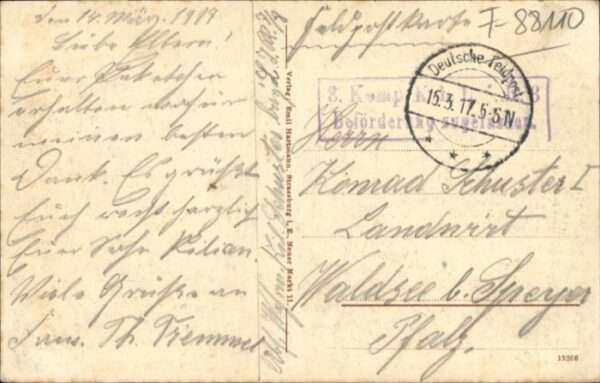 den 14. März. 1917
Liebe Eltern!
Euer Paketchen
erhalten wofür
meinen besten
Dank. Es grüßt
Euch recht herzlich
Euer Sohn Kilian.
Viele Grüße an
Fam. Th. Tremmel
Verlag Emil Hartmann, Strassburg i. E., Neuer Markt 11.
Feldpostkarte
F-88110
Deutsche Feldpost
15.3.17. 5-6 N
3. Komp.
Beförderung zugelassen.
Herrn
Konrad Schuster I
Landwirt
Waldsee b. Speyer
Pfalz.